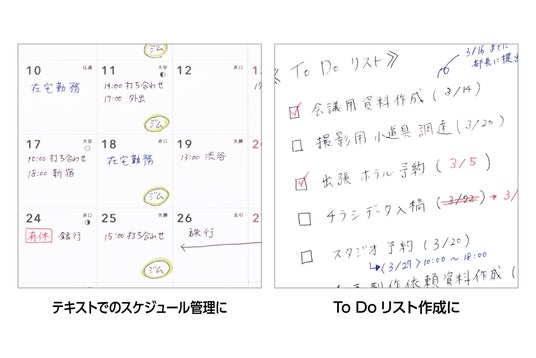 ジム
10 仏滅
在宅勤務
11 大安
14:00 打ち合わせ
17:00 外出
ジム
12 赤口
17 大安
10:00 打ち合わせ
18:00 新宿
18 赤口
在宅勤務
ジム
19 先勝
13:00 渋谷
24 赤口
有休 銀行
25 先勝
15:00 打ち合わせ
ジム
26 友引
旅行
テキストでのスケジュール管理に
3/16 までに
部長に提出
To Do リスト》
会議用資料作成 (3/14)
撮影用小道具調達 (3/20)
出張ホテル予約 (3/5)
チラシデータ入稿 (3/22) → 3/
スタジオ予約 (3/20)
(3/27) 10:00 〜 18:00
制作依頼資料作成 (
To Do リスト作成に